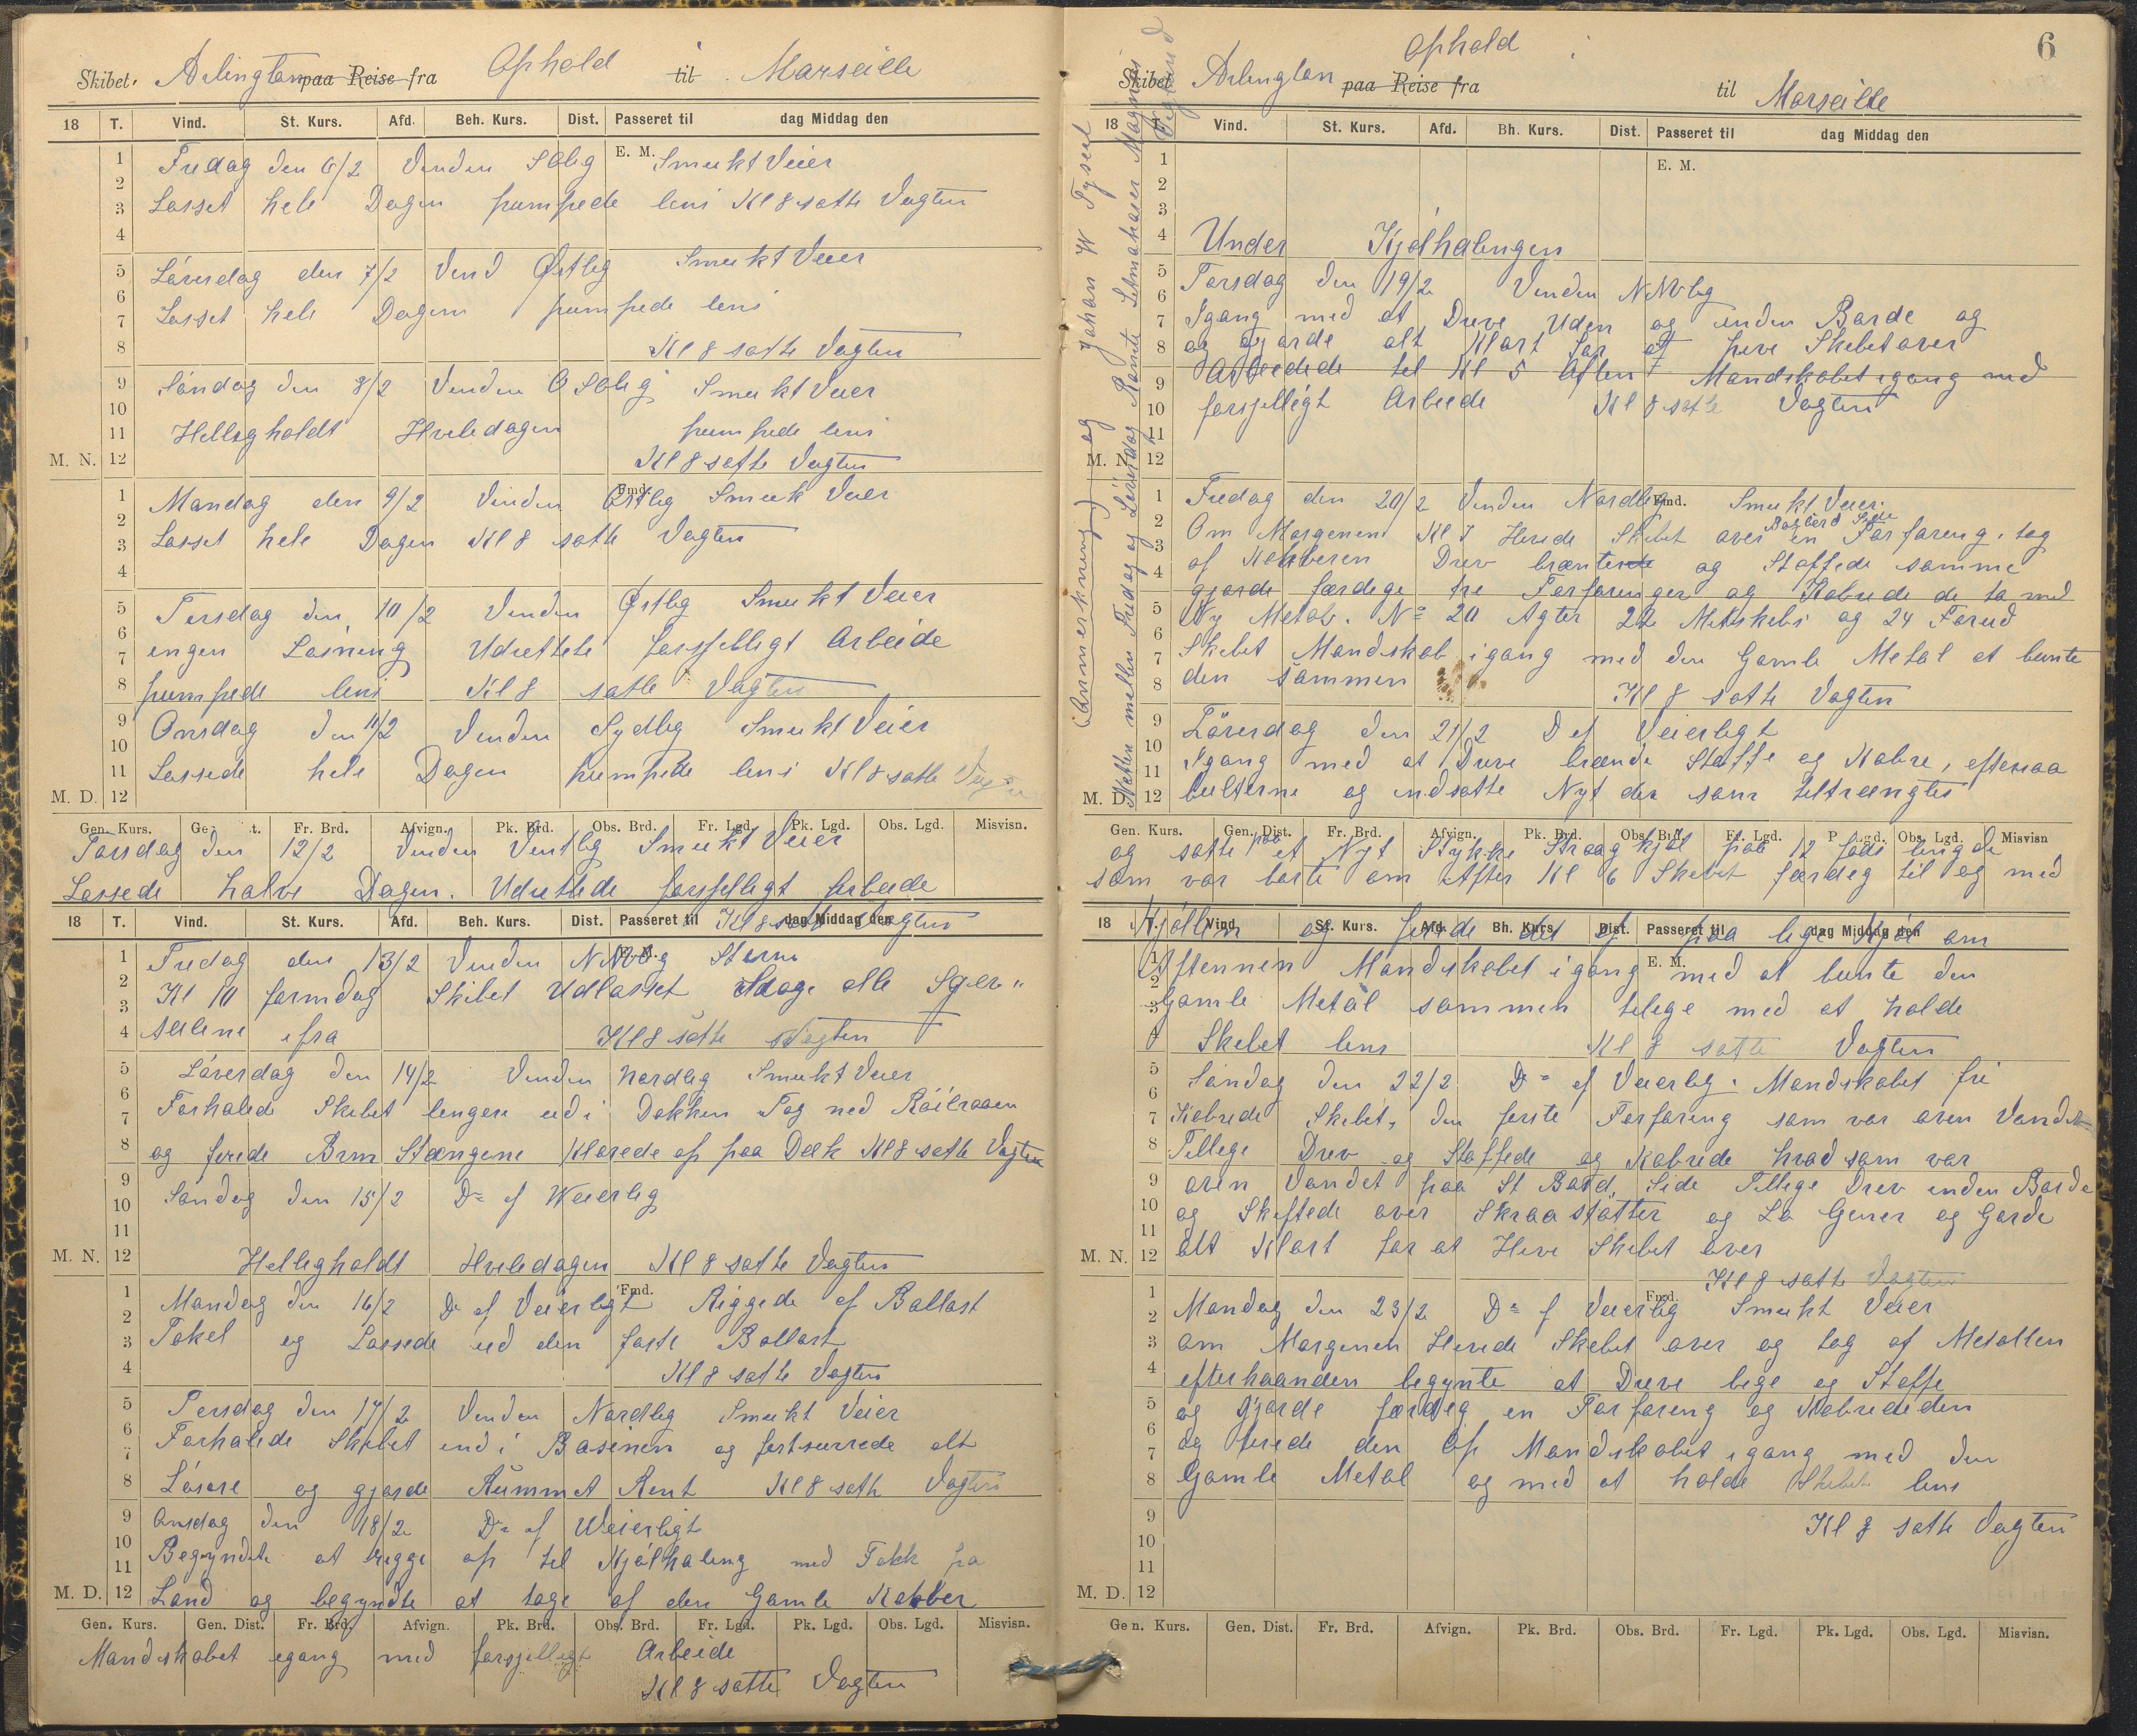 Skibet. Arlington paa Reise fra Ophold til Marseille
18 T. Vind. St. Kurs. Afd. Beh. Kurs. Dist. Passeret til dag Middag den
E. M.
Fredag den 6/2 Vinden SOlig Smukt Veier
Losset hele Dagen pumpede lens Kl 8 satte Vagten
Löverdag den 7/2 Vind Østlig Smukt Veier
Losset hele Dagen pumpede lens
Kl 8 satte Vagten
Söndag den 8/2 Vinden OSOlig Smukt Veier
Helligholdt Hviledagen pumpede lens
M. N. Kl 8 satte Vagten
Fmd.
Mandag den 9/2 Vinden Østlig Smuk Veier
Losset hele Dagen Kl 8 satte Vagten
Tirsdag den 10/2 Vinden Østlig Smukt Veier
ingen Losning Udrettete forsjelligt Arbeide
pumpede lens Kl 8 satte Vagten
Onsdag den 11/2 Vinden Sydlig Smukt Veier
Lossede hele Dagen pumpede lens Kl 8 satte Vagten
M. D.
Gen. Kurs. Fr. Brd. Afvign. Pk. Brd. Obs. Brd. Fr. Lgd. Pk. Lgd. Obs. Lgd. Misvisn.
Torsdag den 12/2 Vinden Vestlig Smukt Veier
Lossede halve Dagen. Udrettede forsjelligt Arbeide
18 T. Vind. St. Kurs. Afd. Beh. Kurs. Dist. Passeret til dag Middag den
Kl 8 satte Vagten
Fredag den 13/2 Vinden NNVlig Storm
Kl 10 formdag Skibet Udlosset alle
ifra Kl 8 satte Vagten
Löverdag den 14/2 Vinden Nordlig Smukt Veier
Forhalede Skibet lengere ud i Dokken Tog ned Röilraaen
og firede Brm Stængene Klarede op paa Dæk Kl 8 satte Vagten
Söndag den 15/2 Do af Weierlig
M. N. Helligholdt Hviledagen Kl 8 satte Vagten
Fmd.
Mandag den 16/2 Do af Veierligt Riggede af Ballast
Takel og Lossede ud den faste Ballast
Kl 8 satte Vagten
Tirsdag den 17/2 Vinden Nordlig Smukt Veier
Forhalede Skibet ind i Basinen og fortsurrede alt
Lösöre og gjorde Rummet Rent Kl 8 satte Vagten
Onsdag den 18/2 Do af Weierligt
Begyndte at rigge op til Kjölhaling med Takk fra
M. D. Land og begyndte at tage af den Gamle Kobber
Gen. Kurs. Gen. Dist. Fr. Brd. Afvign. Pk. Brd. Obs. Brd. Fr. Lgd. Pk. Lgd. Obs. Lgd. Misvisn.
Mandskabet igang med forsjelligt Arbeide
Kl 8 satte Vagten
6
Skibet Arlington paa Reise fra Ophold i til Marseille
18 T. Vind. St. Kurs. Afd. Bh. Kurs. Dist. Passeret til dag Middag den
E. M.
Under Kjølhalingen
Torsdag den 19/2 Vinden NNVlig
Igang med at Drive Uden og inden Borde og
og Gjorde alt Klart for at hive Skibet over
Arbeidede til Kl 5 Aften Mandskabet igang med
forsjelligt Arbeide Kl 8 satte Vagten
M. N.
Fredag den 20/2 Vinden Nordlig Fmd. Smukt Veier.
Bagbord Side
Om Morgenen Kl 7 Hivede Skibet over en Forfaring. tog
af Kobberen Drev brænte og Stoffede samme
gjorde færdige tre Forfaringer og Kobrede de to med
Ny Metal. No 20 Agter 22 Mitskibs og 24 Forud
Skibet Mandskab igang med den Gamle Metal at bunte
den sammen Kl 8 satte Vagten
Löverdag den 21/2 Do af Veierligt
Igang med at Drive brænde Stoffe og Kobre, eftersaa
M. D. bulterne og indsatte Nyt der som tiltrængtes
Gen. Kurs. Gen. Dist. Fr. Brd. Afvign. Pk. Brd. Obs. Brd. Fr. Lgd. Obs. Lgd. Misvisn
og satte paa et Nyt Stykke Straagkjöl paa 12 fods lengde
som var borte om Aften Kl 6 Skibet færdig til og med
18 T. Vind. St. Kurs. Afd. Bh. Kurs. Dist. Passeret til dag Middag den
Kjöllen og firede det op paa lige Kjöl om
E. M.
Aftennen Mandskabet igang med at bunte den
Gamle Metal sammen tilige med at holde
Skibet lens Kl 8 satte Vagten
Söndag den 22/2 Do af Veierlig. Mandskabet fri
Kobrede Skibet, den første Forfaring som var oven Vandet
Tillige Drev og Stoffede og Kobrede hvad som var
oven Vandet paa St Bord Side Tillige Drev inden Borde
og Skiftede over Skraastötter og Gjorde
M. N. alt Klart for at Hive Skibet over
Kl 8 satte Vagten
Fmd.
Mandag den 23/2 Do af Veierlig Smukt Veier
om Morgenen Hivede Skibet over og tog af Metallen
efterhaanden begynte at Drive bege og Stoffe
og Gjorde færdig en Forfaring og Kobrede den
og firede den op Mandskabet igang med den
Gamle Metal og med at holde Skibet lens
Kl 8 satte Vagten
M. D.
Gen. Kurs. Gen. Dist. Fr. Brd. Afvign. Pk. Brd. Obs. Brd. Fr. Lgd. Pk. Lgd. Obs. Lgd. Misvisn.
(Anmerkning) og Johan W
Natten mellem Fredag og Löverdag Römte Magnus